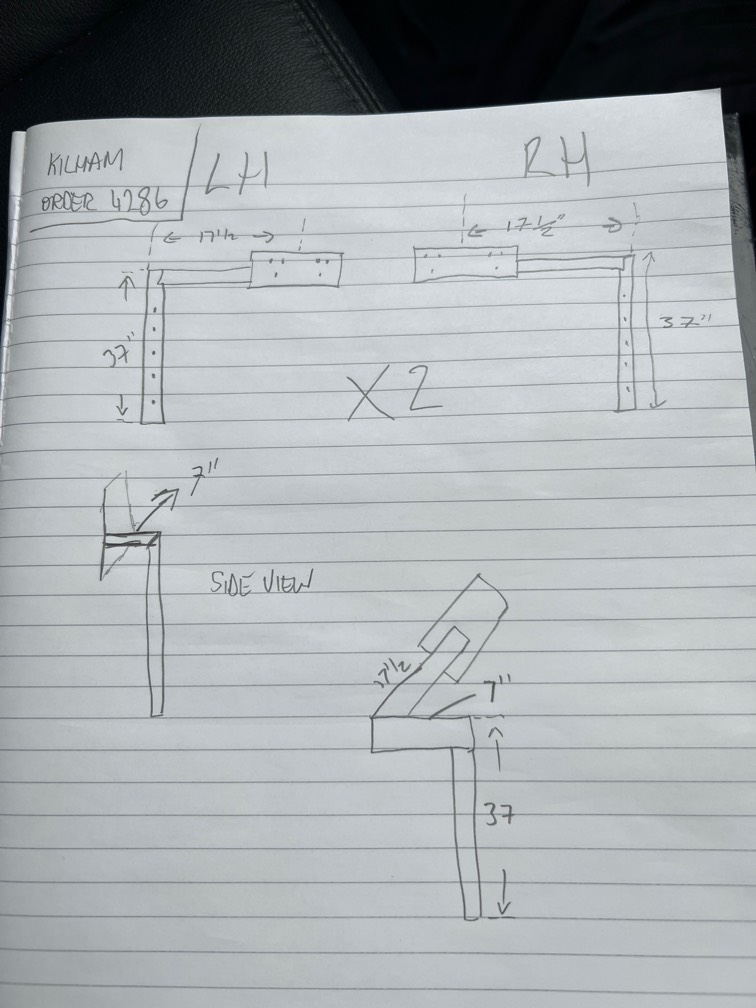 KILHAM
ORDER 4286
LH
RH
17 1/2
17 1/2"
37"
37"
X2
7"
SIDE VIEW
17 1/2
7"
37